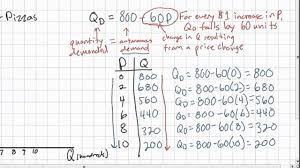 -Pizzas
Q_D = 800 - 60P
For every $1 increase in P,
Q_D falls by 60 units
quantity demanded = autonomous demand
change in Q resulting
from a price change
P Q
0 800 Q_D = 800-60(0) = 800
2 680 Q_D = 800-60(2) = 680
4 560 Q_D = 800-60(4) = 560
6 440 Q_D = 800-60(6) = 440
8 320 Q_D = 800-60(8) = 320
10 200 Q_D = 800-60(10) = 200
7 8 9 10 Q (hundreds)